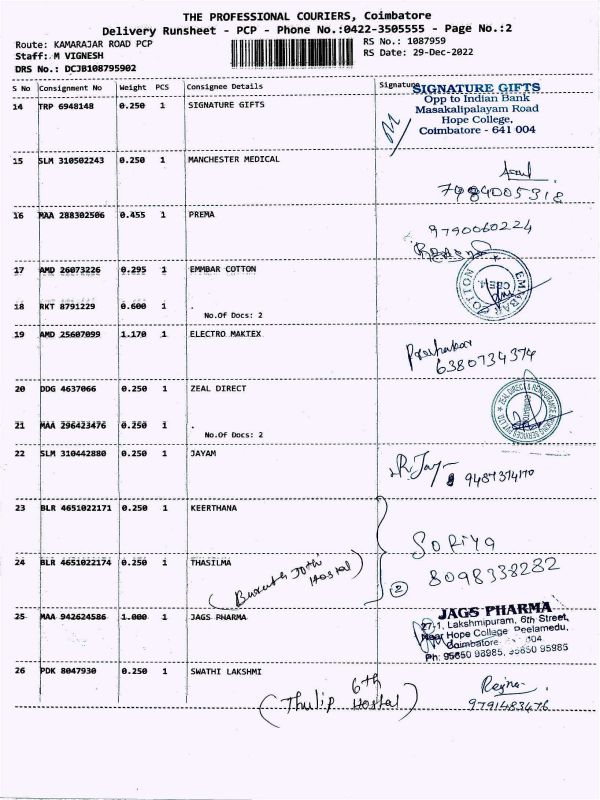 THE PROFESSIONAL COURIERS, Coimbatore
Delivery Runsheet - PCP - Phone No.:0422-3505555 - Page No.:2
Route: KAMARAJAR ROAD PCP
RS No.: 1087959
Staff: M VIGNESH
RS Date: 29-Dec-2022
DRS No.: DCJB108795902
S No Consignment No Weight PCS Consignee Details Signature
14 TRP 6948148 0.250 1 SIGNATURE GIFTS
SIGNATURE GIFTS
Opp to Indian Bank
Masakalipalayam Road
Hope College,
Coimbatore - 641 004
15 SLM 310502243 0.250 1 MANCHESTER MEDICAL
7984005318
16 MAA 288302506 0.455 1 PREMA
9790060224
17 AMD 26073226 0.295 1 EMMBAR COTTON
EMMBAR COTTON
CBE-4
18 RKT 8791229 0.600 1 .
No.Of Docs: 2
19 AMD 25607099 1.170 1 ELECTRO MAKTEX
Prabhakar
6380734374
20 DDG 4637066 0.250 1 ZEAL DIRECT
21 MAA 296423476 0.250 1 .
No.Of Docs: 2
22 SLM 310442880 0.250 1 JAYAM
R. Jay
9487374170
23 BLR 4651022171 0.250 1 KEERTHANA
SoRiya
24 BLR 4651022174 0.250 1 THASILMA
8098338282
Hostal)
2
25 MAA 942624586 1.000 1 JAGS PHARMA
JAGS PHARMA
27-1, Lakshmipuram, 6th Street,
Near Hope College Peelamedu,
Coimbatore 004
Ph: 95650 98985, 95650 95985
26 PDK 8047930 0.250 1 SWATHI LAKSHMI
6th
(Thulip Hostal)
Regina
9791483476